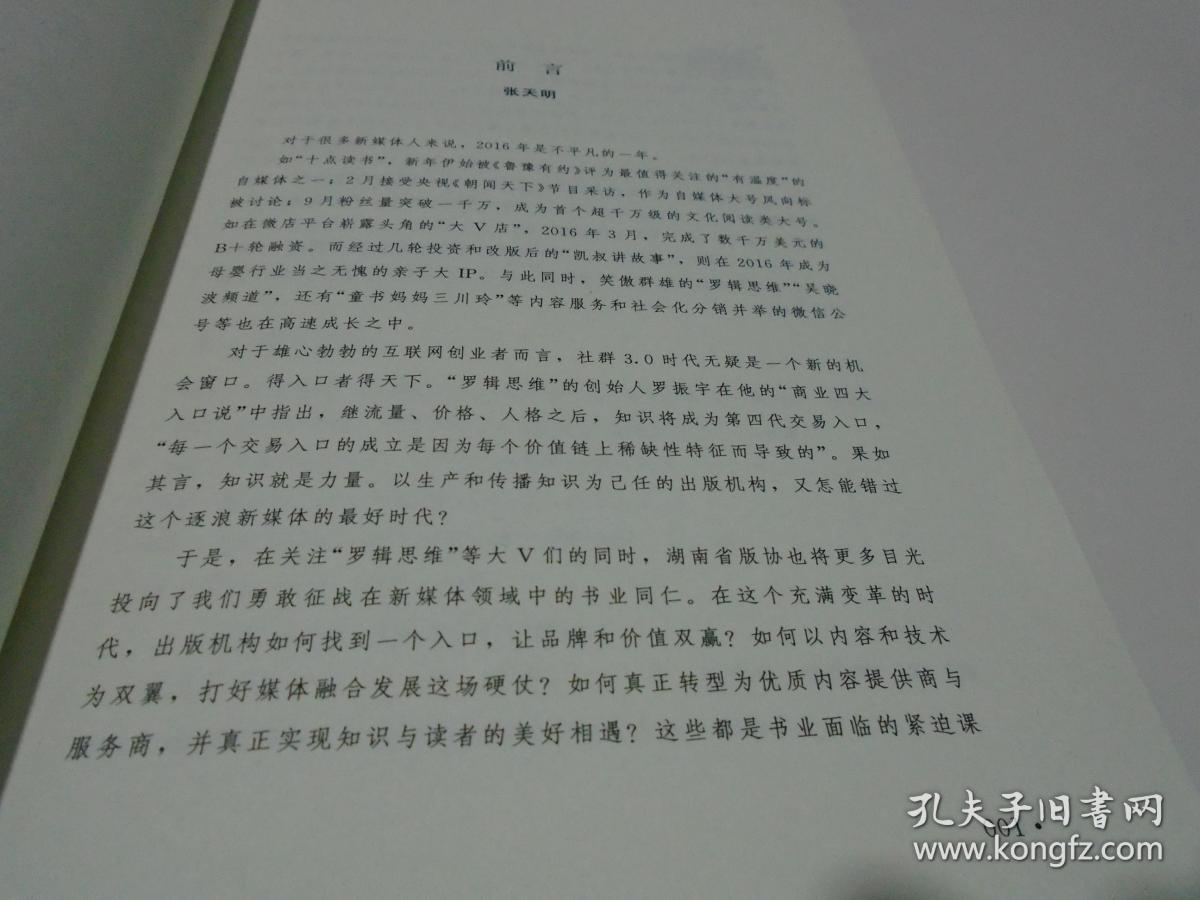 前 言
张天明
对于很多新媒体人来说，2016 年是不平凡的一年。
如“十点读书”，新年伊始被《鲁豫有约》评为最值得关注的“有温度”的
自媒体之一；2 月接受央视《朝闻天下》节目采访，作为自媒体大号风向标
被讨论；9 月粉丝量突破一千万，成为首个超千万级的文化阅读类大号。
如在微店平台崭露头角的“大 V 店”，2016 年 3 月，完成了数千万美元的
B+轮融资。而经过几轮投资和改版后的“凯叔讲故事”，则在 2016 年成为
母婴行业当之无愧的亲子大 IP。与此同时，笑傲群雄的“罗辑思维”“吴晓
波频道”，还有“童书妈妈三川玲”等内容服务和社会化分销并举的微信公
号等也在高速成长之中。
对于雄心勃勃的互联网创业者而言，社群 3.0 时代无疑是一个新的机
会窗口。得入口者得天下。“罗辑思维”的创始人罗振宇在他的“商业四大
入口说”中指出，继流量、价格、人格之后，知识将成为第四代交易入口，
“每一个交易入口的成立是因为每个价值链上稀缺性特征而导致的”。果如
其言，知识就是力量。以生产和传播知识为己任的出版机构，又怎能错过
这个逐浪新媒体的最好时代？
于是，在关注“罗辑思维”等大 V 们的同时，湖南省版协也将更多目光
投向了我们勇敢征战在新媒体领域中的书业同仁。在这个充满变革的时
代，出版机构如何找到一个入口，让品牌和价值双赢？如何以内容和技术
为双翼，打好媒体融合发展这场硬仗？如何真正转型为优质内容提供商与
服务商，并真正实现知识与读者的美好相遇？这些都是书业面临的紧迫课
001·
孔夫子旧书网
www.kongfz.com